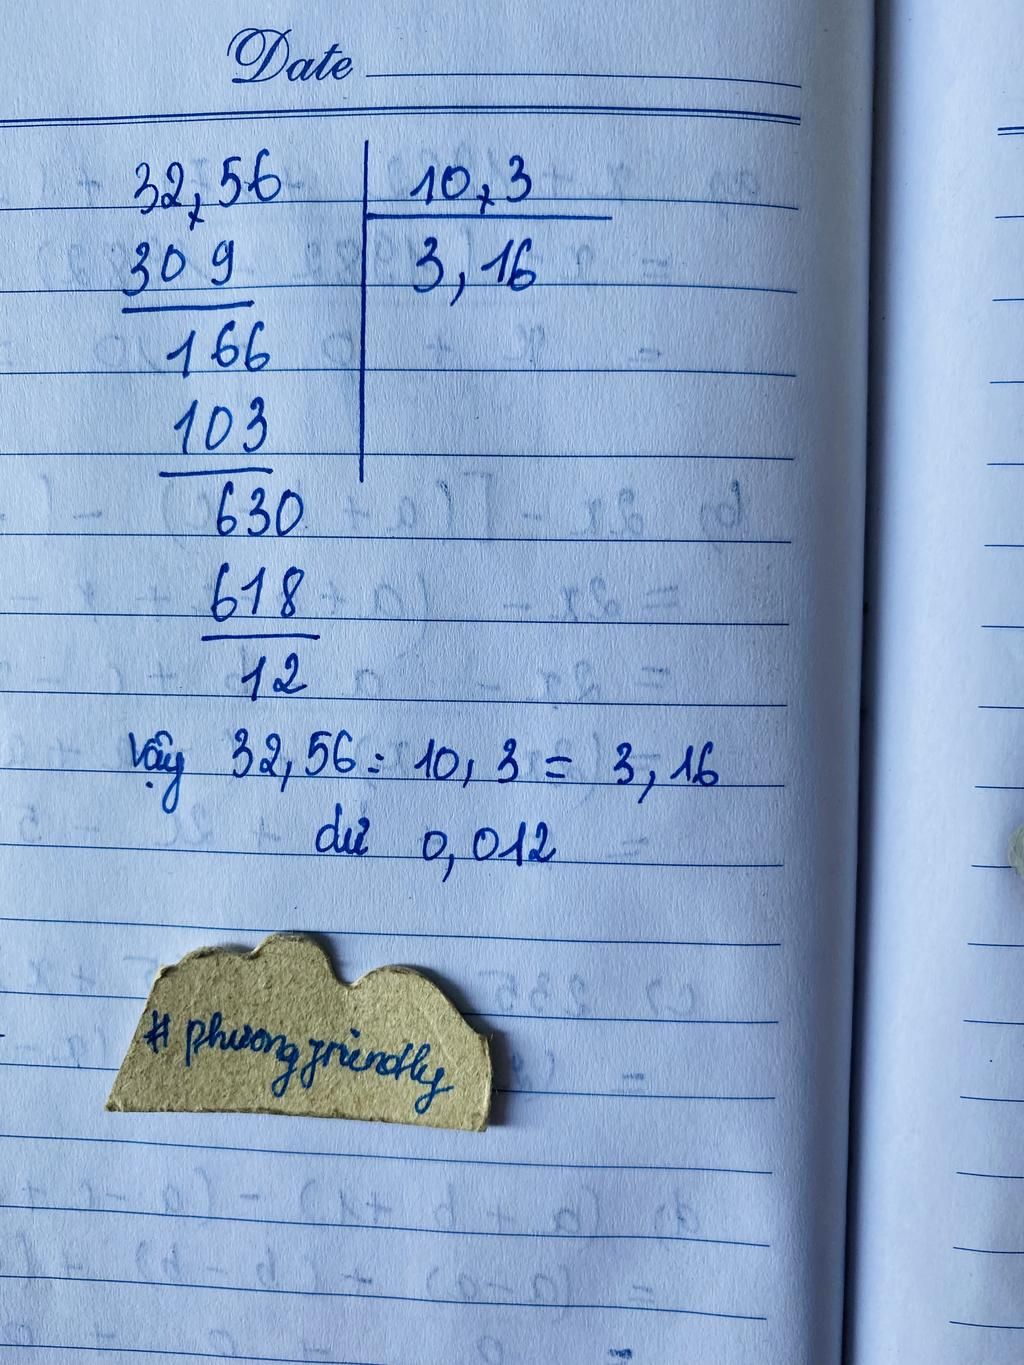 Date
32,56 10,3
309 3,16
166
103
630
618
12
Vậy 32,56 : 10,3 = 3,16
dư 0,012
# phuongfriendly